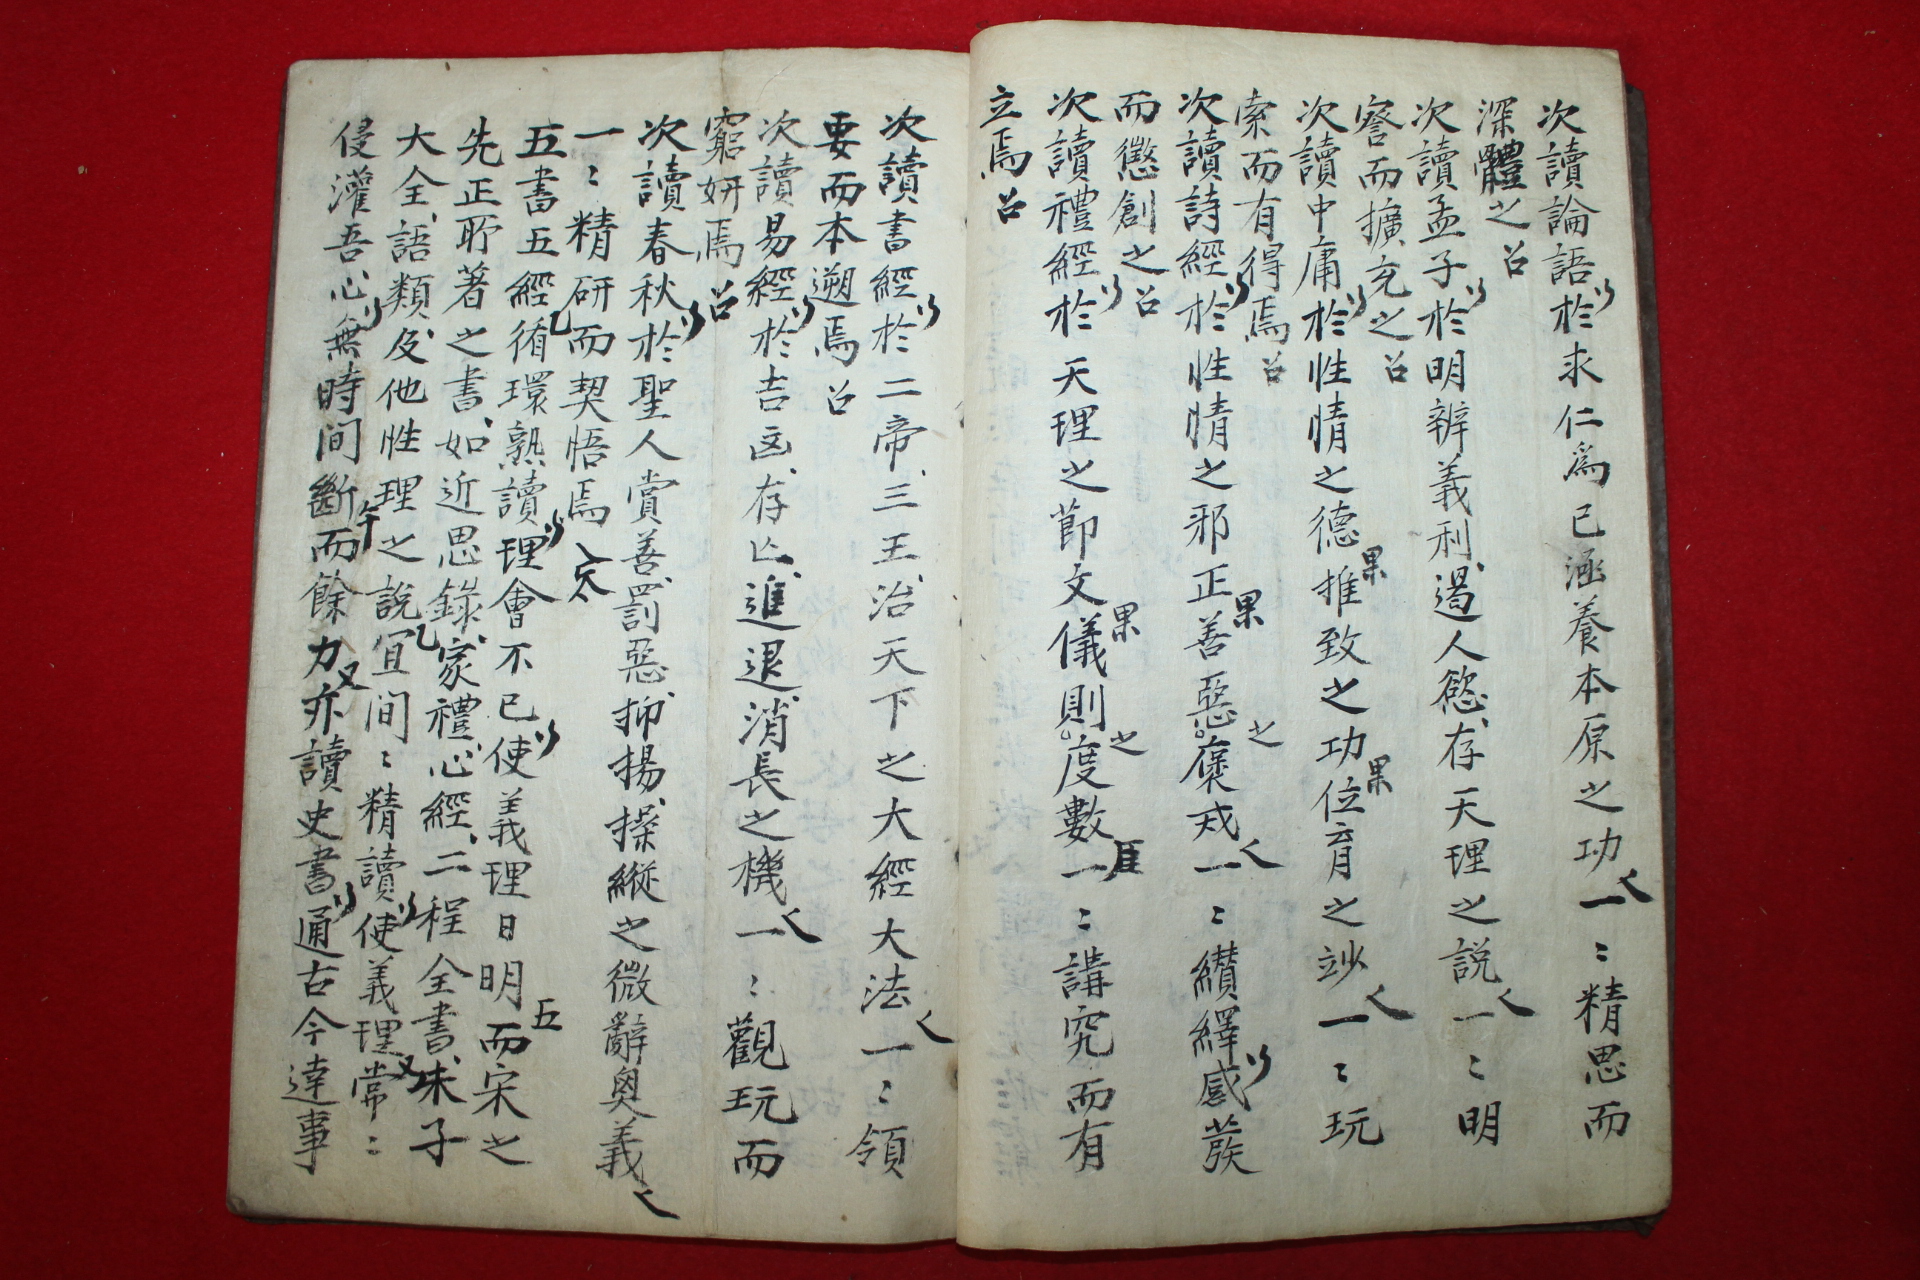 次讀論語於求仁爲己涵養本原之功一〻精思而
深體之召
次讀孟子於明辨義利遏人慾存天理之說一〻明
察而擴充之召
次讀中庸於性情之德果推致之功果位育之妙一〻玩
索而有得焉召
次讀詩經於性情之邪正果善惡之褒戒一〻纘繹感發
而懲創之召
次讀禮經於天理之節文果儀則之度數一〻講究而有
立焉召
次讀書經於二帝三王治天下之大經大法一〻領
要而本遡焉召
次讀易經於吉凶存亡進退消長之機一〻觀玩而
窮妍焉召
次讀春秋於聖人賞善罰惡抑揚操縱之微辭奧義
一〻精研而契悟焉
五書五經循環熟讀理會不已使義理日明五而宋之
先正所著之書如近思錄家禮心經二程全書朱子
大全語類及他性理之說宜間〻精讀使義理常〻
侵灌吾心無時間斷午而餘力又亦讀史書通古今達事